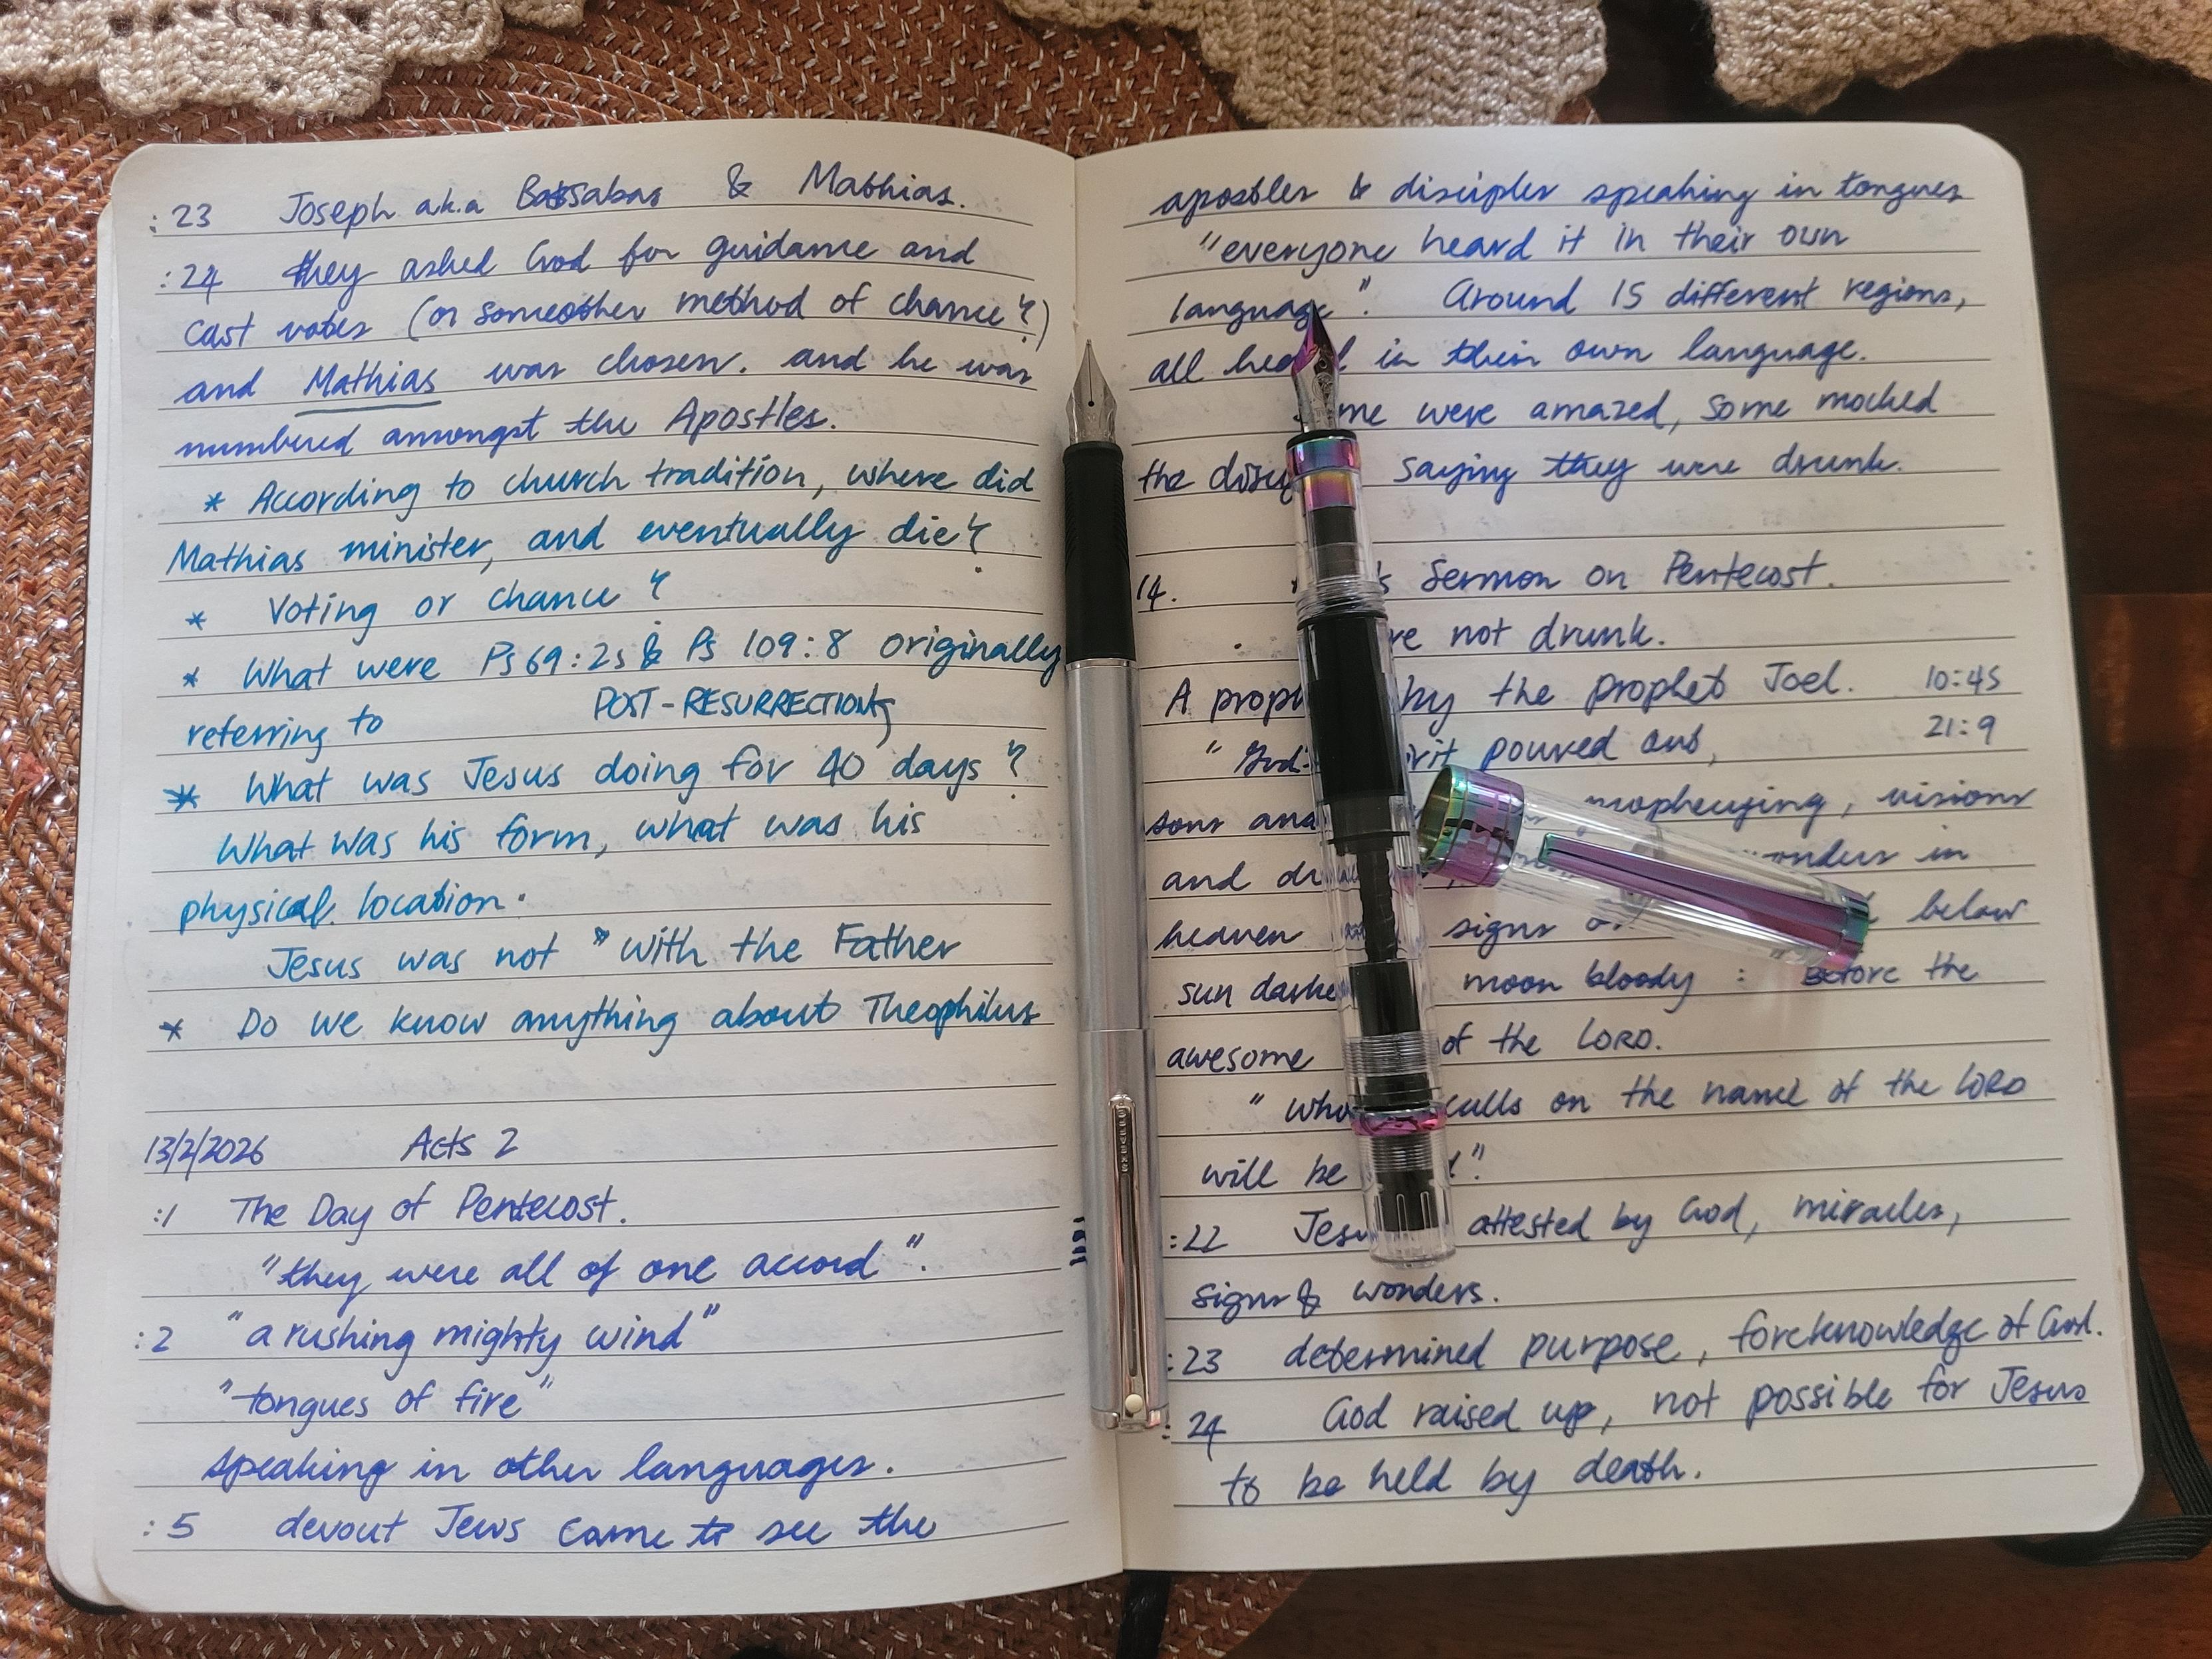 :23 Joseph a.k.a Barsabas & Mathias.
:24 they asked God for guidance and
cast votes (or someother method of chance?)
and Mathias was chosen. and he was
numbered amongst the Apostles.
* According to church tradition, where did
Mathias minister, and eventually die?
* Voting or chance?
* What were Ps 69:25 & Ps 109:8 originally
referring to
POST-RESURRECTION
* What was Jesus doing for 40 days?
What was his form, what was his
physical location.
Jesus was not "with the Father
* Do we know anything about Theophilus
13/2/2026 Acts 2
:1 The Day of Pentecost.
"they were all of one accord".
:2 "a rushing mighty wind"
"tongues of fire"
speaking in other languages.
:5 devout Jews came to see the
apostles & disciples speaking in tongues
"everyone heard it in their own
language". Around 15 different regions,
all in their own language.
were amazed, some mocked
the saying they were drunk.
14. Sermon on Pentecost.
not drunk.
A by the prophet Joel. 10:45
poured out, 21:9
sons prophecying, visions
and in
heaven signs below
sun moon bloody : Before the
awesome of the LORD.
" calls on the name of the LORD
will be "
:22 attested by God, miracles,
signs & wonders.
:23 determined purpose, foreknowledge of God.
:24 God raised up, not possible for Jesus
to be held by death.